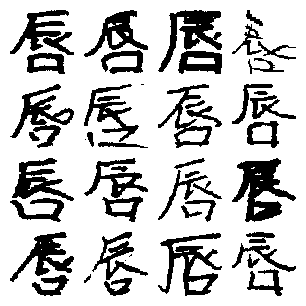 唇唇唇唇
唇唇唇唇
唇唇唇唇
唇唇唇唇